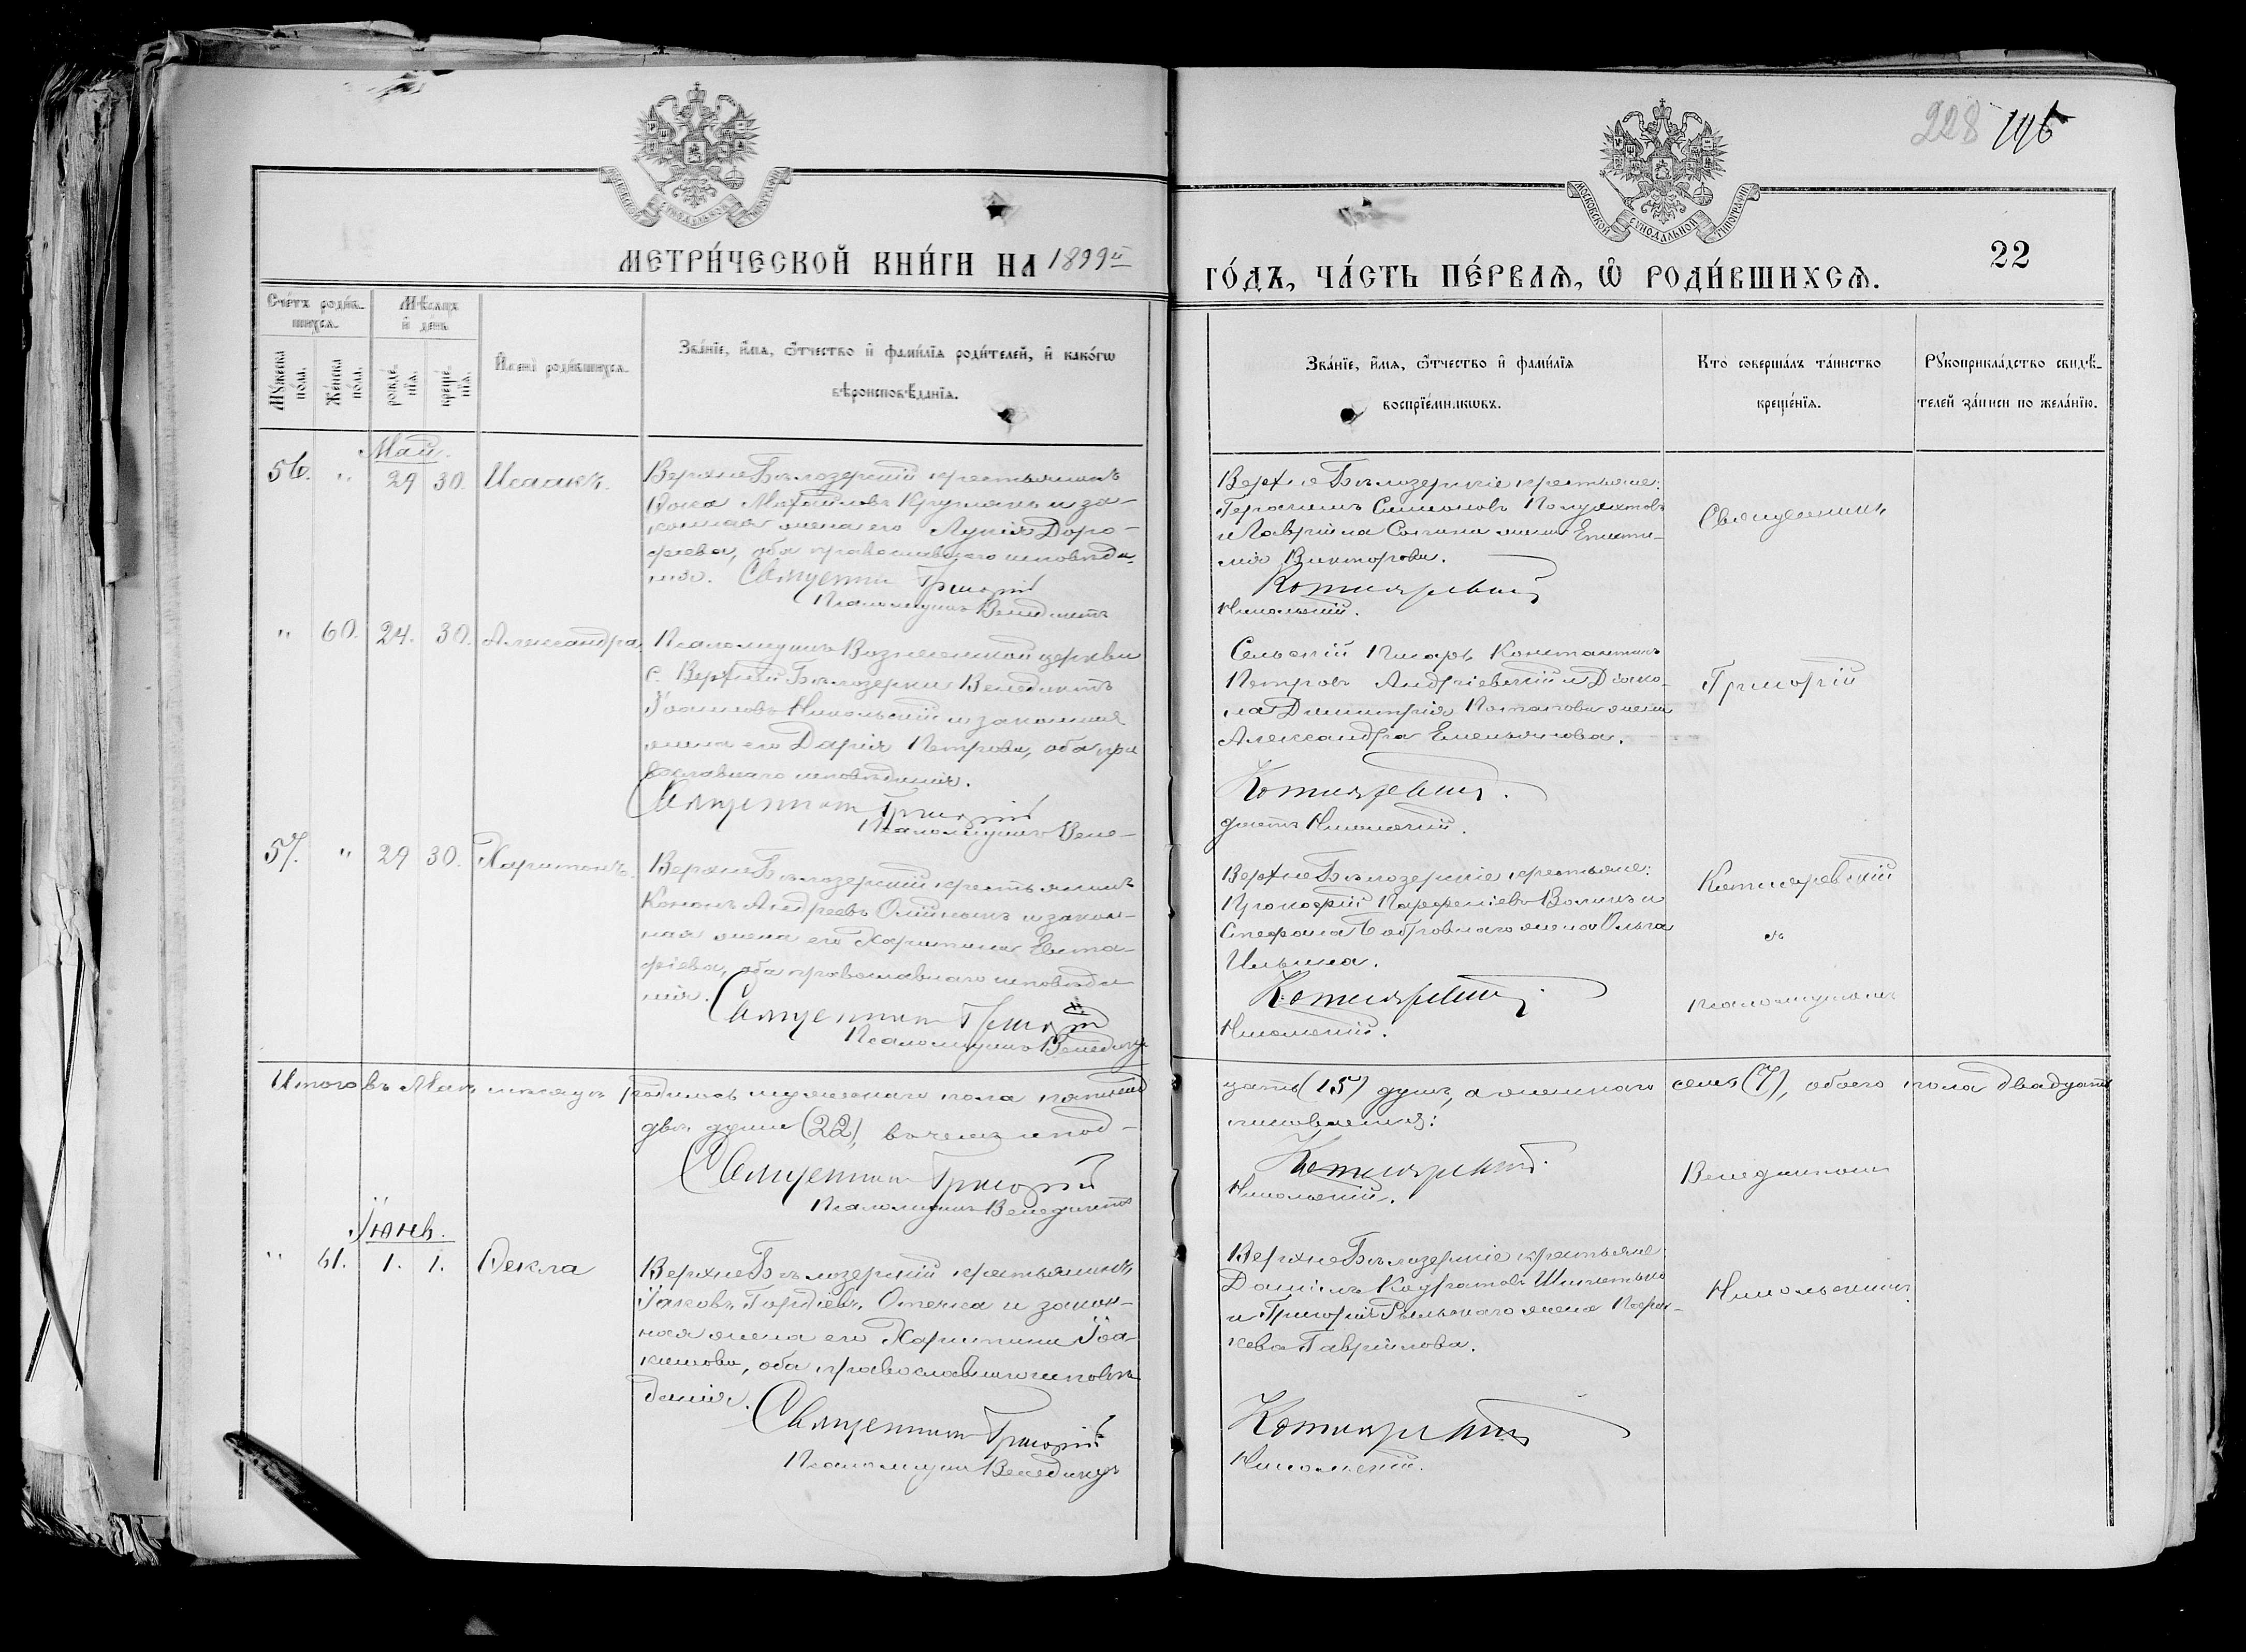 228 146
МОСКОВСКОЙ СѴНОДАЛЬНОЙ ТИПОГРАФІИ
МОСКОВСКОЙ СѴНОДАЛЬНОЙ ТИПОГРАФІИ
МЕТРИ́ЧЕСКОЙ КНИ́ГИ НА 1899й
ГО́ДЪ, ЧА́СТЬ ПЕ́РВАѦ, Ѡ҆ РОДИ́ВШИХСѦ.
22
Сче́тъ роди́в-
шихсѧ.
Мѣ́сѧцъ
и҆ де́нь
Мꙋ́жеска
по́ла.
Же́нска
по́ла.
рожде́-
нїѧ.
креще́-
нїѧ.
И҆мена̀ роди́вшихсѧ.
Зва́нїе, и҆́мѧ, ѻ҆́тчество и҆ фами́лїѧ роди́телей, и҆ како́гѡ
вѣроисповѣ́данїѧ.
Зва́нїе, и҆́мѧ, ѻ҆́тчество и҆ фами́лїѧ
воспрїе́мникѡвъ.
Кто̀ соверша́лъ та́инство
креще́нїѧ.
Рꙋкоприкла́дство свидѣ́-
телей за́писи по жела́нїю.
Май.
56. " 29 30. Исаакъ.
Верхне Бѣлозерскій крестьянинъ
Михайловъ и за-
конная жена его Лукія Доро-
феева, оба православнаго исповѣда-
нія. Священникъ Григорій
Псаломщикъ Венедиктъ
Верхне Бѣлозерскіе крестьяне:
Герасимъ Симеоновъ
и Гавріила жена
Викторова.
Котляревскій
Никольскій.
Священникъ
" 60. 24. 30. Александра
Псаломщикъ Вознесенской церкви
с. Верхней Бѣлозерки Венедиктъ
Іоанновъ Никольскій и законная
жена его Дарія Петрова, оба пра
вославнаго исповѣданія.
Священникъ Григорій
Псаломщикъ Вене-
Сельскій Писарь Константинъ
Петровъ Андріевскій и Діако-
на Димитрія Потапова жена
Александра Емельянова.
Котляревскій.
диктъ Никольскій.
Григорій
57. " 29 30. Харитонъ.
Верхне Бѣлозерскій крестьянинъ
Кононъ Андреевъ Олійникъ и закон-
ная жена его Харитина Евста-
фіева, оба православнаго исповѣда
нія. Священникъ Григорій
Псаломщикъ Венедиктъ
Верхне Бѣлозерскіе крестьяне:
Прокофій Парфеніевъ Воликъ и
Стефана Бобровнаго жена Ольга
Ильина.
Котляревскій.
Никольскій.
Котляревскій
съ
псаломщикомъ
Итого въ Маѣ мѣсяцѣ родилось мужескаго пола пятнад
цать (15) душъ, а женскаго семь (7), обоего пола двадцать
двѣ души (22), въ чемъ и под-
писываемся:
Священникъ Григорій
Котляревскій.
Псаломщикъ Венедиктъ
Никольскій.
Венедиктомъ
Іюнь.
" 61. 1. 1. Ѳекла
Верхне Бѣлозерскій крестьянинъ
Іаковъ Гордіевъ Отечка и закон-
ная жена его Харитина Іоа-
кимова, оба православнаго исповѣ
данія.
Священникъ Григорій
Псаломщикъ Венедиктъ
Верхне Бѣлозерскіе крестьяне
Даніилъ Кодратовъ
и Григорія Рыльскаго жена Парас-
кева Гавріилова.
Котляревскій
Никольскій.
Никольскимъ.